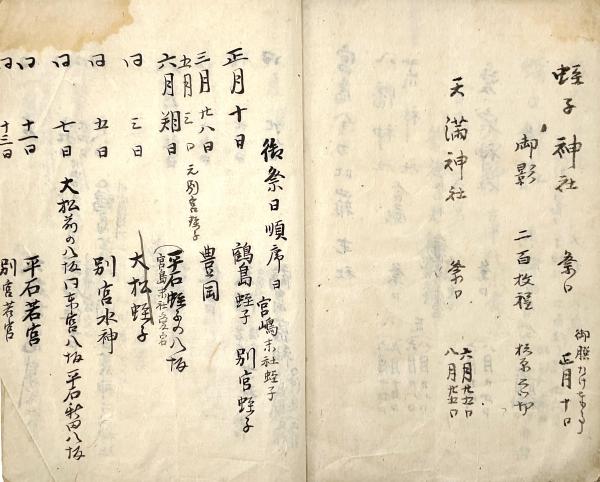 蛭子神社 祭日 正月十日
御影 二百枚程
天満神社 祭日 六月廿五日
八月廿五日
御祭日順席日 宮嶋末社蛭子
正月十日 鶴島蛭子 別宮蛭子
三月廿八日 豊岡
五月三日 元別宮蛭子
六月朔日 平石蛭子の八坂
宮島末社
同 三日 大松蛭子
同 五日 別宮水神
同 七日 大松前の八坂 同東宮八坂 平石新田八坂
同 十一日 平石若宮
同 十三日 別宮若宮